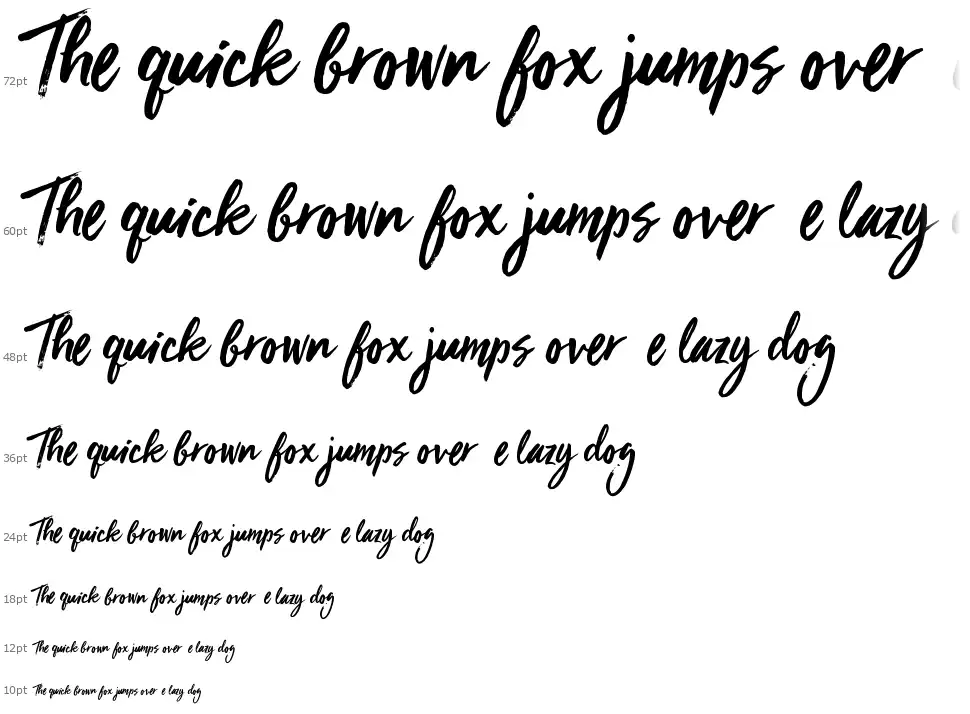 72pt The quick brown fox jumps over
60pt The quick brown fox jumps over e lazy
48pt The quick brown fox jumps over e lazy dog
36pt The quick brown fox jumps over e lazy dog
24pt The quick brown fox jumps over e lazy dog
18pt The quick brown fox jumps over e lazy dog
12pt The quick brown fox jumps over e lazy dog
10pt The quick brown fox jumps over e lazy dog